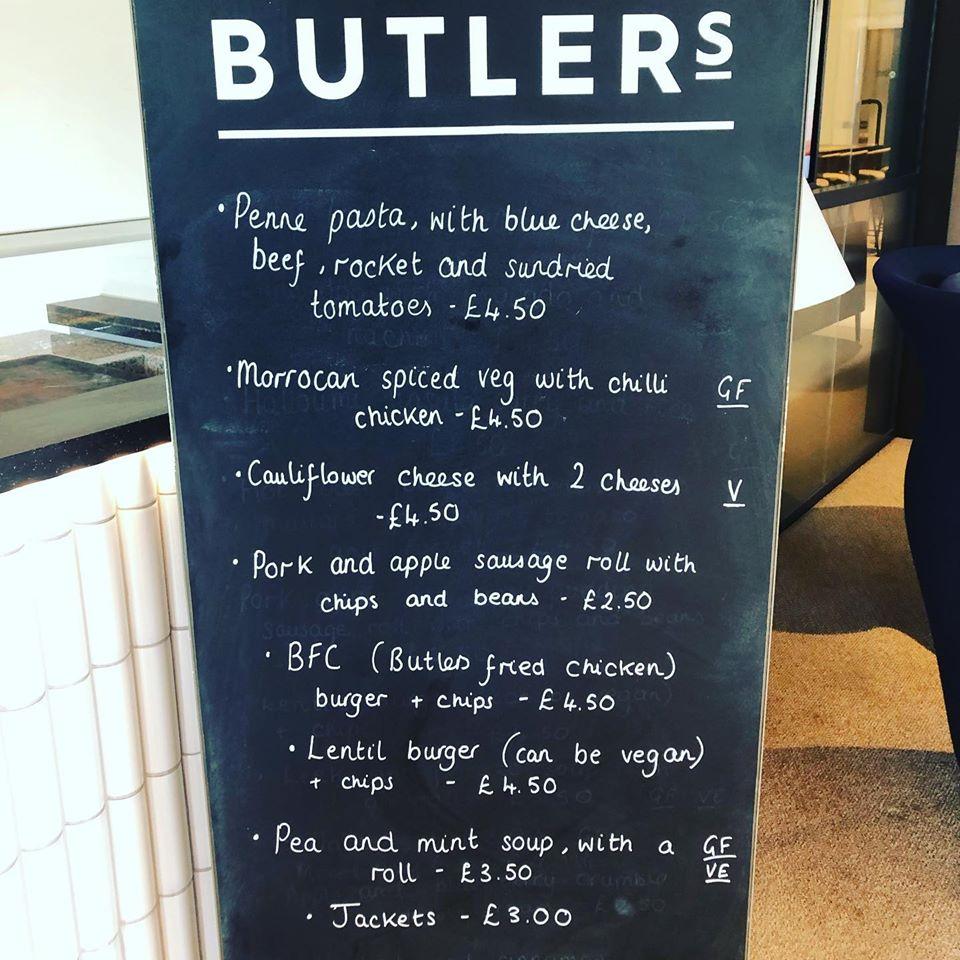 BUTLERS
• Penne pasta, with blue cheese,
beef, rocket and sundried
tomatoes - £4.50
• Morrocan spiced veg with chilli GF
chicken - £4.50
• Cauliflower cheese with 2 cheeses V
- £4.50
• Pork and apple sausage roll with
chips and beans - £2.50
• BFC (Butlers fried chicken)
burger + chips - £4.50
• Lentil burger (can be vegan)
+ chips - £4.50
• Pea and mint soup, with a GF
roll - £3.50 VE
• Jackets - £3.00